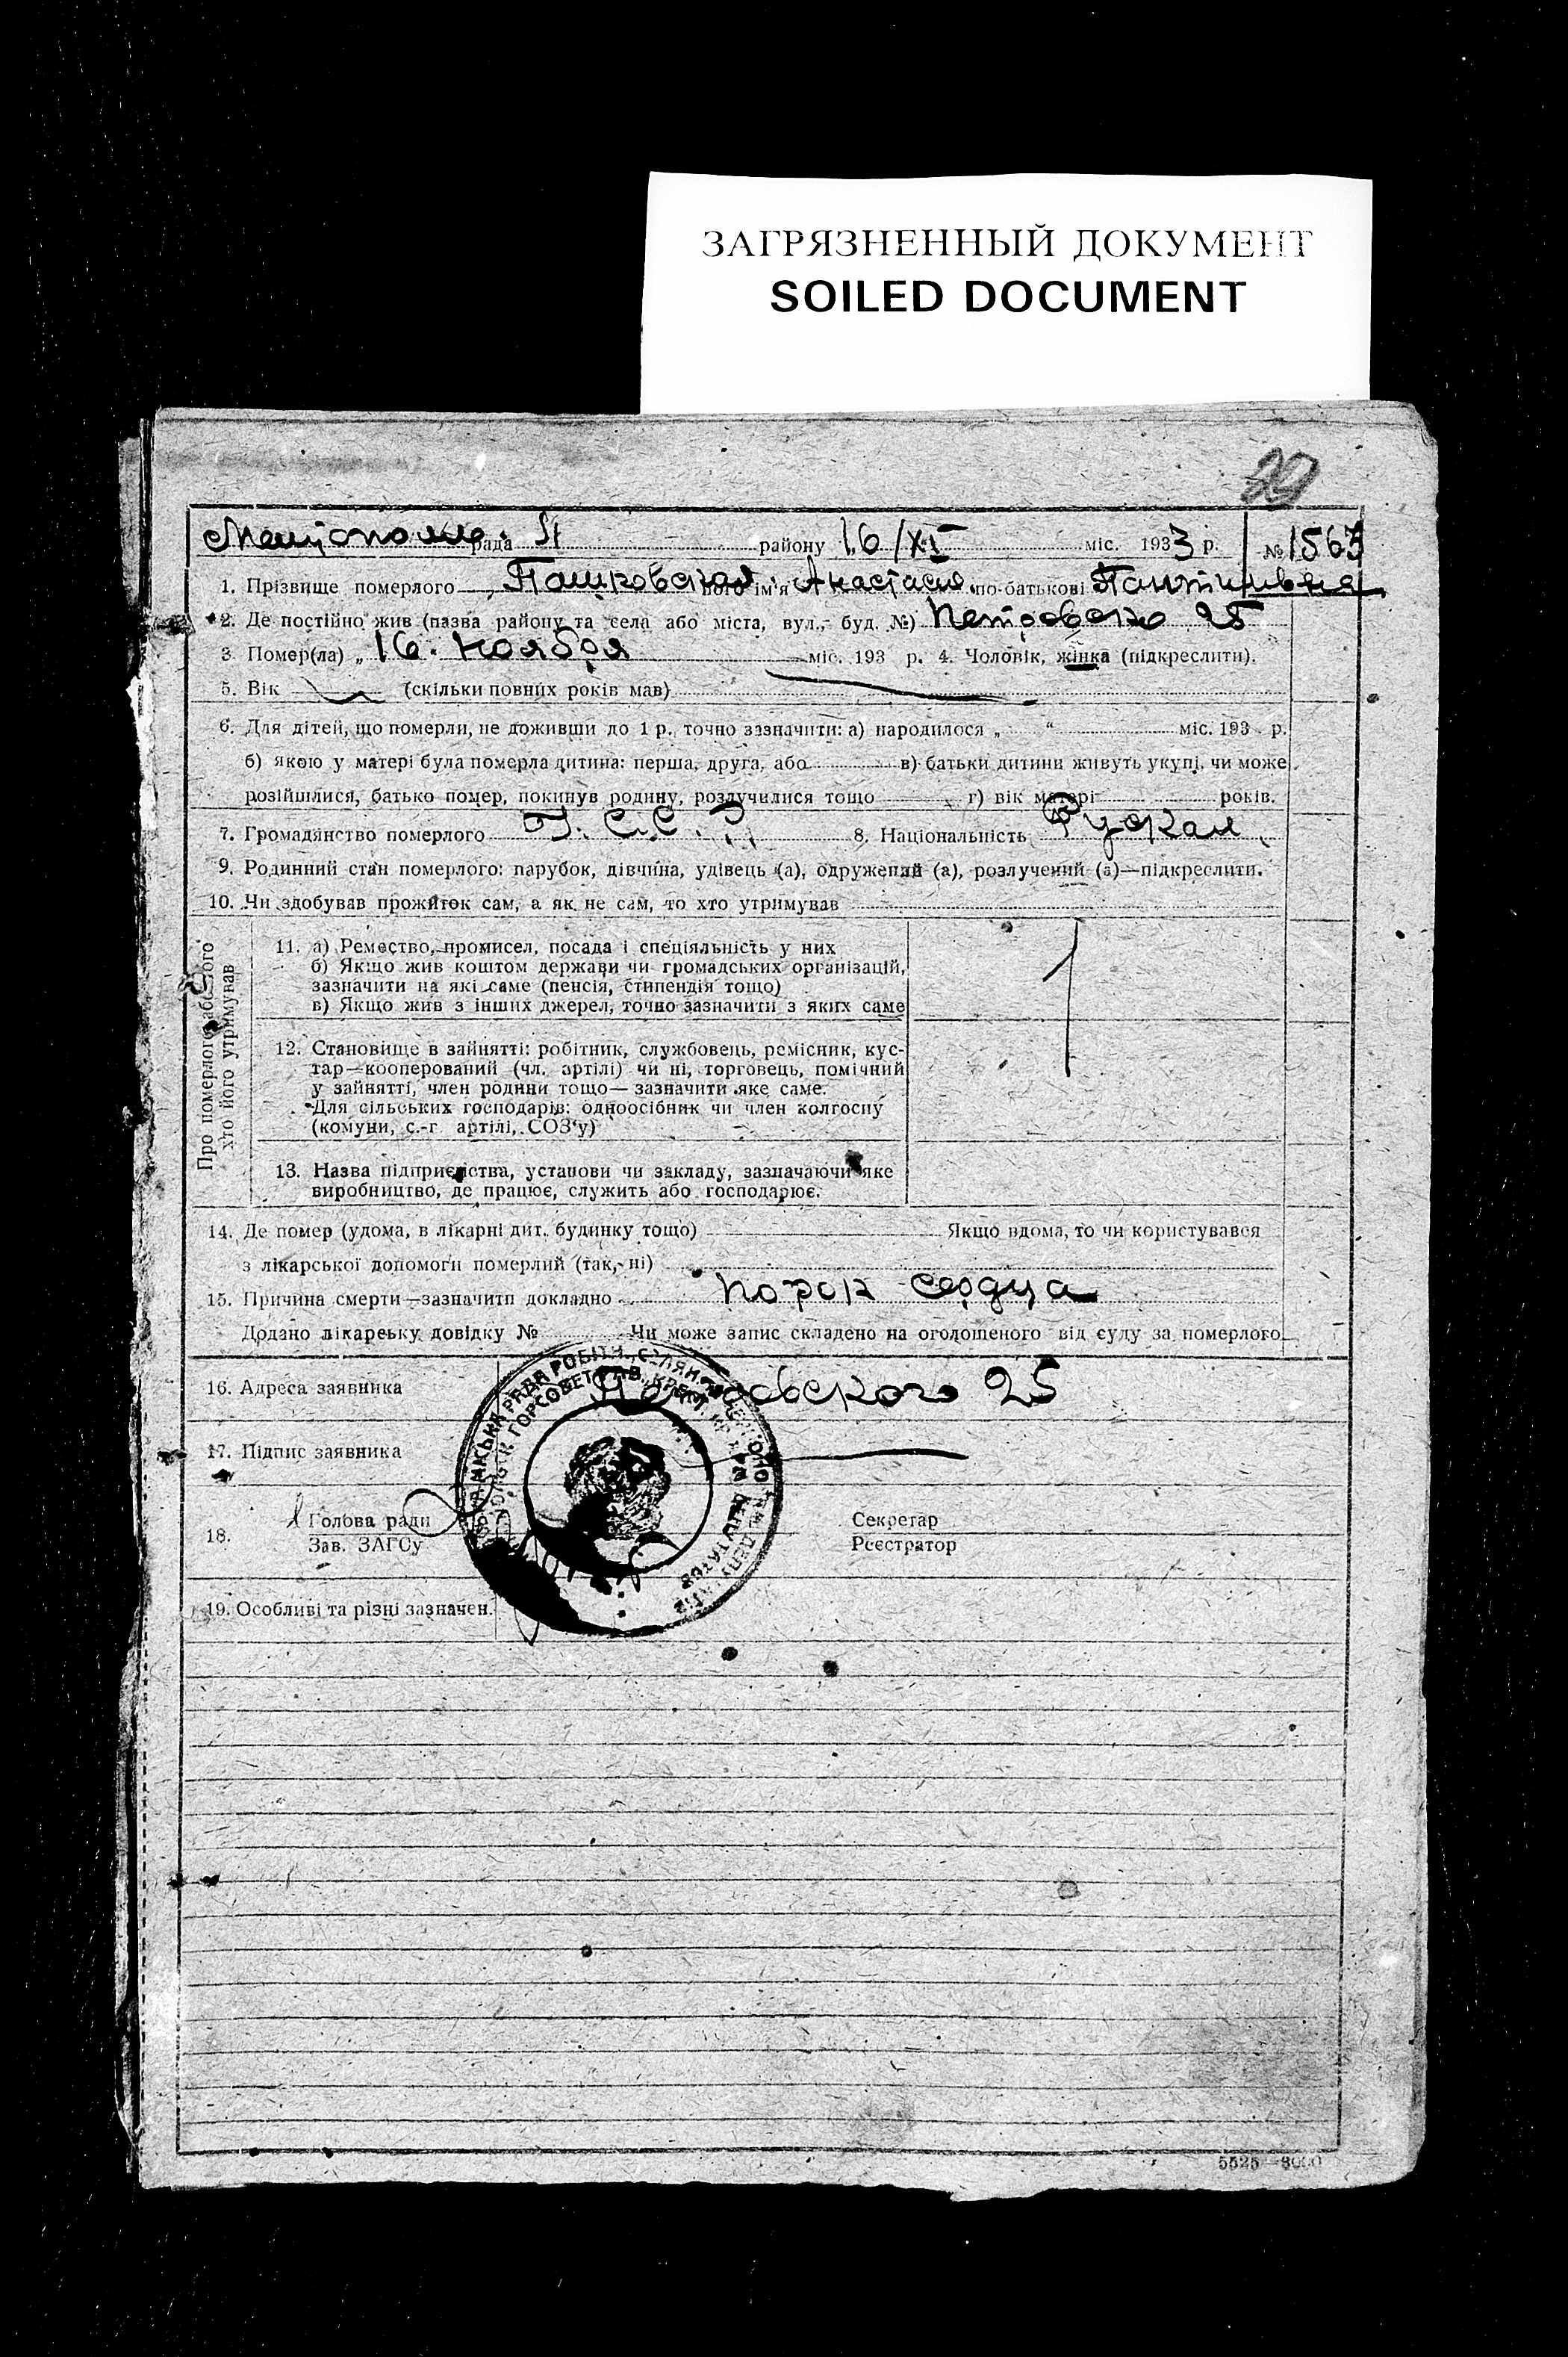 ЗАГРЯЗНЕННЫЙ ДОКУМЕНТ
SOILED DOCUMENT
рада района 16/XI міс. 1933 р. № 1563
1. Прізвище померлого Пашковская його ім'я Анастасия по-батькові
2. Де постійно жив (назва району та села або міста, вул., буд. №) Петровского 25
3. Помер(ла) „ 16. ноября міс. 193 р. 4. Чоловік, жінка (підкреслити).
5. Вік (скільки повних років мав)
6. Для дітей, що померли, не доживши до 1 р. точно зазначити: а) народилося „ “ міс. 193 р.
б) якою у матері була померла дитина: перша, друга, або в) батьки дитини живуть укупі, чи може
розійшлися, батько помер, покинув родину, розлучилися тощо г) вік матері років.
7. Громадянство померлого 8. Національність Руская
9. Родинний стан померлого: парубок, дівчина, удівець (а), одружений (а), розлучений (а)—підкреслити.
10. Чи здобував прожиток сам, а як не сам, то хто утримував
Про померлого або того
хто його утримував
11. а) Ремество, промисел, посада і спеціяльність у них
б) Якщо жив коштом держави чи громадських організацій,
зазначити на які саме (пенсія, стипендія тощо)
в) Якщо жив з інших джерел, точно зазначити з яких саме
12. Становище в зайнятті: робітник, службовець, ремісник, кус-
тар—кооперований (чл. артілі) чи ні, торговець, помічний
у зайнятті, член родини тощо— зазначити яке саме.
Для сільських господарів: одноосібник чи член колгоспу
(комуни, с.-г артілі, СОЗ'у)
13. Назва підприємства, установи чи закладу, зазначаючи яке
виробництво, де працює, служить або господарює.
14. Де помер (удома, в лікарні дит. будинку тощо) Якщо вдома, то чи користувався
з лікарської допомоги померлий (так, ні)
15. Причина смерти—зазначити докладно порок сердца
Додано лікарську довідку № Чи може запис складено на оголошеного від суду за померлого
16. Адреса заявника Петровского 25
17. Підпис заявника
18. Голова ради Секретар
Зав. ЗАГСу Реєстратор
19. Особливі та різні зазначен.